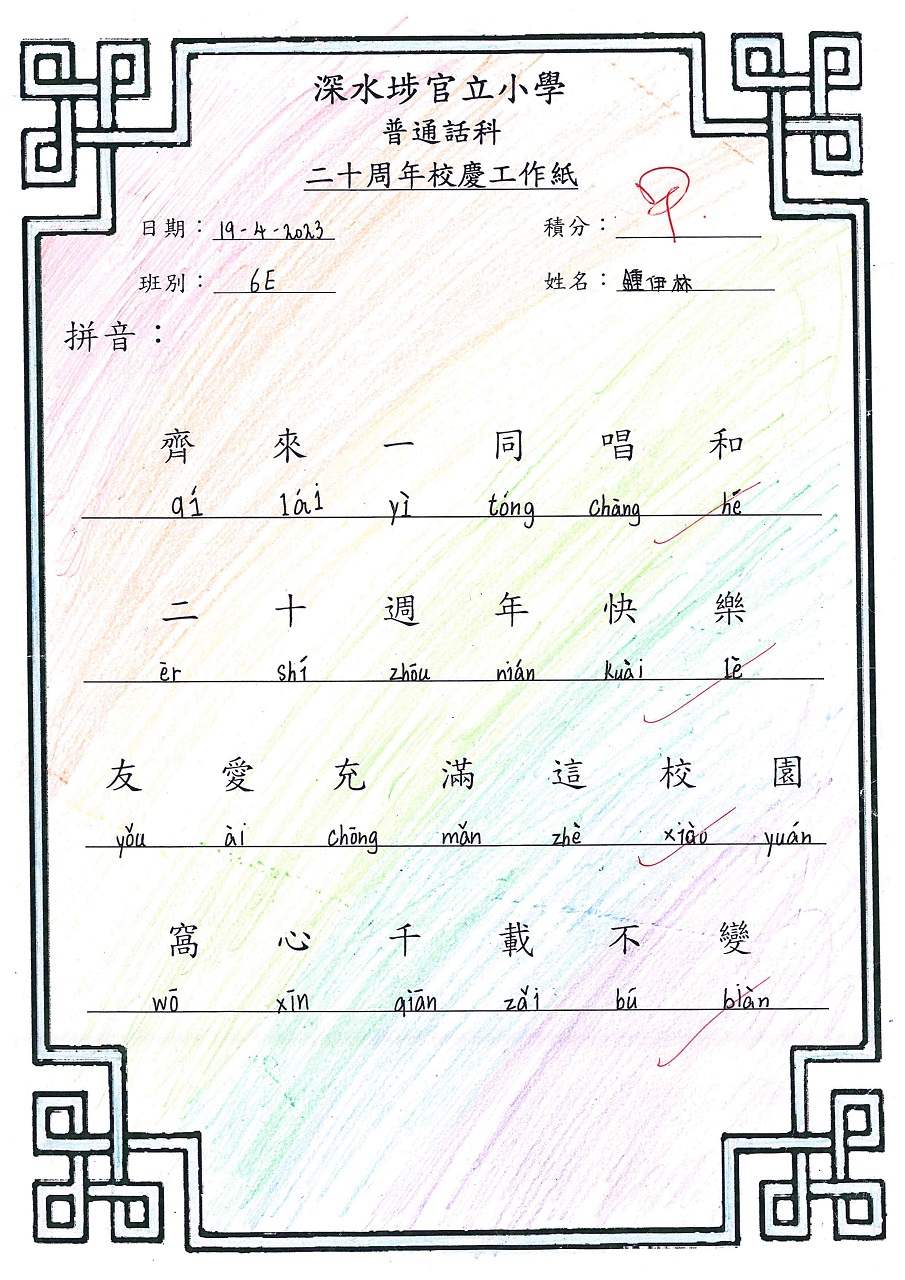 深水埗官立小學
普通話科
二十周年校慶工作紙
日期：19-4-2023 積分：甲
班別：6E 姓名：鍾伊林
拼音：
齊 來 一 同 唱 和
qí lái yì tóng chàng hé
二 十 週 年 快 樂
ēr shí zhōu nián kuài lè
友 愛 充 滿 這 校 園
yǒu ài chōng mǎn zhè xiào yuán
窩 心 千 載 不 變
wō xīn qiān zǎi bú biàn